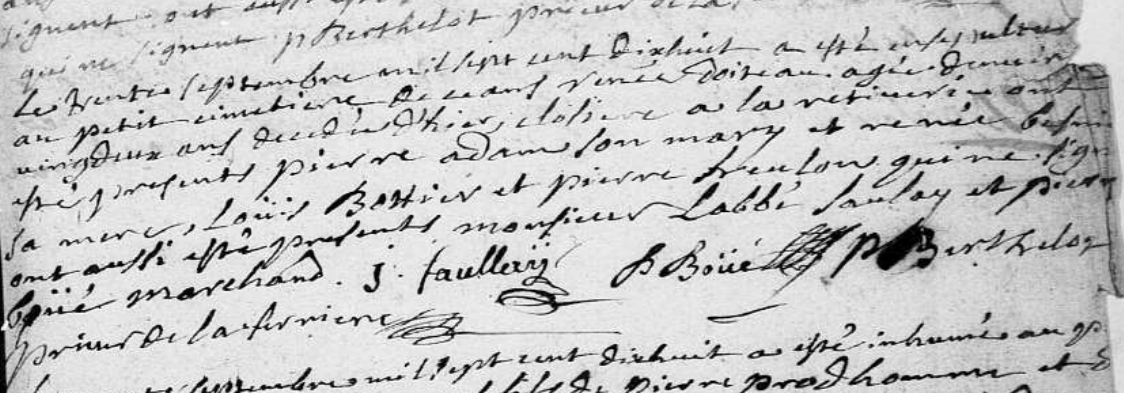 signent ont aussi
qui ne signent p Berthelot prieur de la
Le trente septembre mil sept cent dixhuit a esté ensepulturé
au petit cimetiere de ceans renée doiteau agée d'environ
vingdeux ans decedée d'hier, closiere a la retiverie ont
esté presents pierre adam son mary et renée
sa mere, Loüis Bottier et pierre freulon qui ne sign
ont aussi esté presents monsieur Labbé saulay et pierre
boüé marchand. J. faullery P Boüé P Berthelot
prieur de la ferriere
septembre mil sept cent dixhuit a esté inhumé au p
fils de pierre prodhomme et